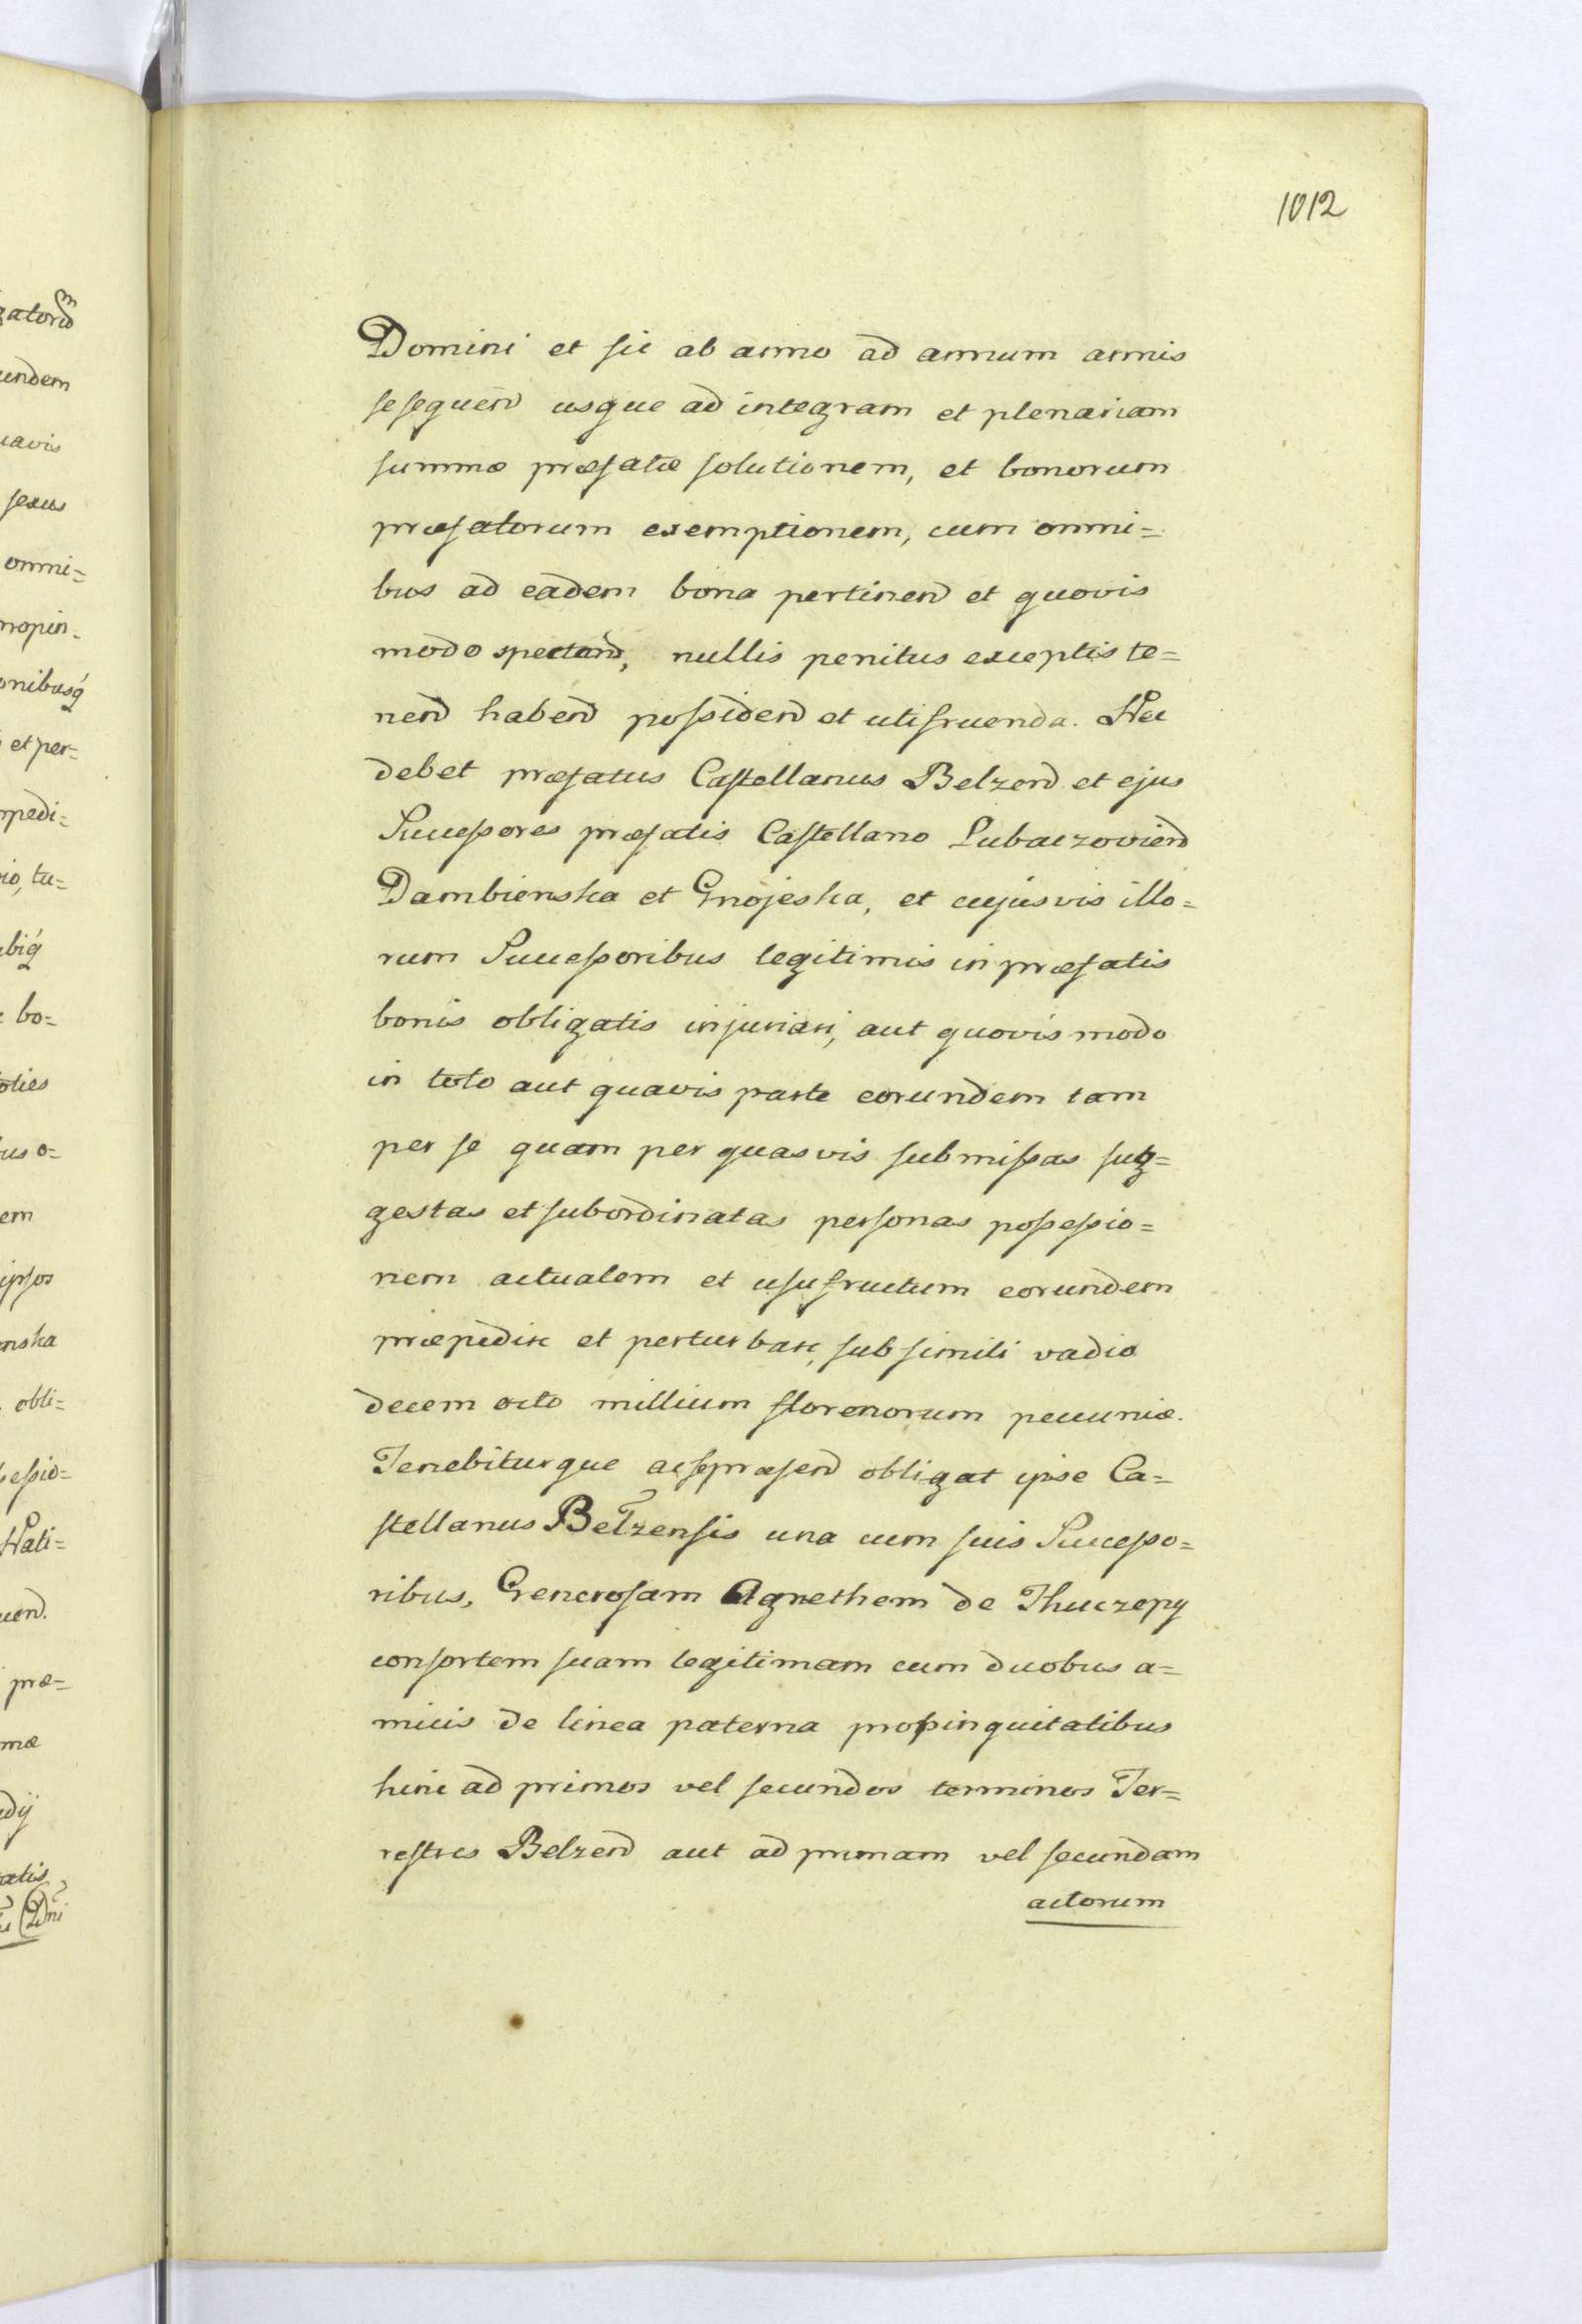 1012
Domini et sic ab anno ad annum annis
sesequen̄ usque ad integram et plenariam
summæ præfatæ solutionem, et bonorum
præfatorum exemptionem, cum omni=
bus ad eadem bona pertinen̄ et quovis
modo spectan̄, nullis penitus exceptis te=
nen̄ haben̄ possiden̄ et utifruenda. Nec
debet præfatus Castellanus Belzen̄ et ejus
Successores præfatis Castellano Lubaczovien̄
Dambienska et Gnojeska, et cujusvis illo=
rum Successoribus legitimis in præfatis
bonis obligatis injuriari, aut quovis modo
in toto aut quavis parte eorundem tam
per se quam per quasvis submissas sug=
gestas et subordinatas personas possessio=
nem actualem et usufructum eorundem
præpedire et perturbare, sub simili vadio
decem octo millium florenorum pecuniæ.
Tenebiturque ac se præsen̄ obligat ipse Ca=
stellanus Belzensis una cum suis Successo=
ribus, Generosam Agnethem de Thuczepy
consortem suam legitimam cum duobus a=
micis de linea paterna propinquitatibus
hinc ad primos vel secundos terminos Ter=
restres Belzen̄ aut ad primam vel secundam
actorum
zatoru᷒m
undem
uavis
sexus
omni=
propin=
onibusq́
et per=
mpedi=
io, tu=
ubiq́
bo=
toties
us o=
em
ipsos
nska
obli=
sessio=
Nati=
uen̄.
præ=
mæ
adij
atis
Dni